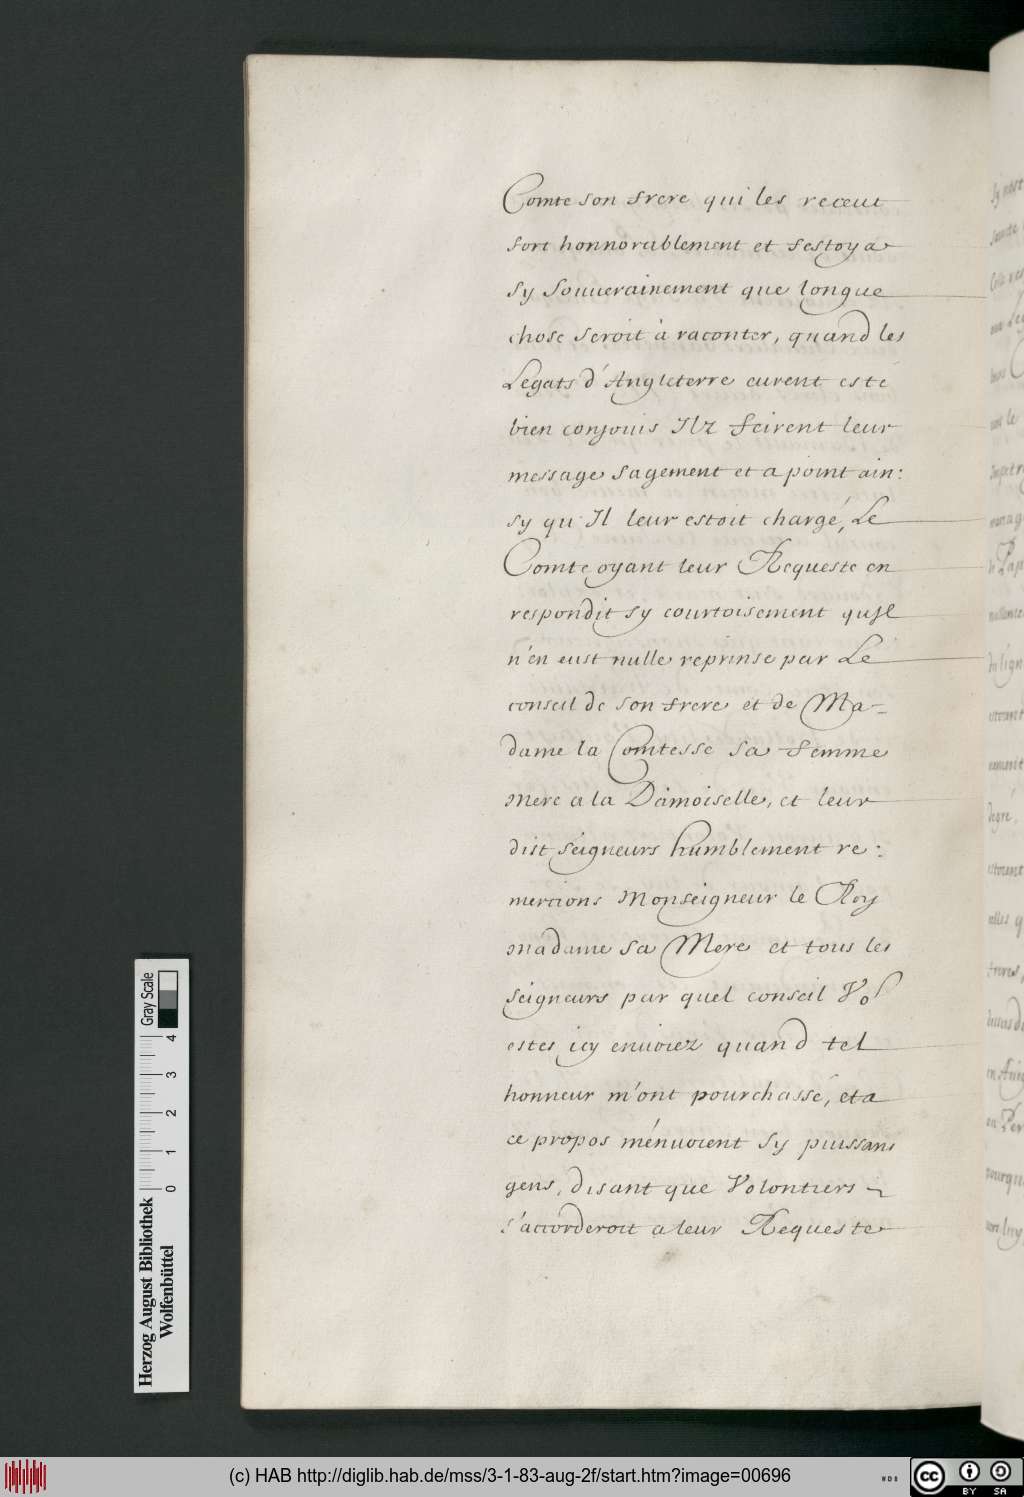 Comte son frere qui les receut
fort honnorablement et festoya
sy souuerainement que longue
chose seroit à raconter, quand les
Legats d'Angleterre eurent esté
bien conjouis Ilz feirent leur
message sagement et a point ain:
sy qu'Il leur estoit chargé, Le
Comte oyant leur Requeste en
respondit sy courtoisement qu'Il
n'en eust nulle reprinse par Le
conseil de son frere et de Ma-
dame la Comtesse sa femme
Mere a la Damoiselle, et leur
dist seigneurs humblement re:
mercions Monseigneur le Roy
madame sa Mere et tous les
seigneurs par quel conseil Vos
estes icy enuoiez quand tel
honneur m'ont pourchassé, et a
ce propos m'énuoient sy puissans
gens, disant que Volontiers
s'accorderoit a leur Requeste
Herzog August Bibliothek
Wolfenbüttel
0 1 2 3 4
Gray Scale
(c) HAB http://diglib.hab.de/mss/3-1-83-aug-2f/start.htm?image=00696
WDB
cc BY SA